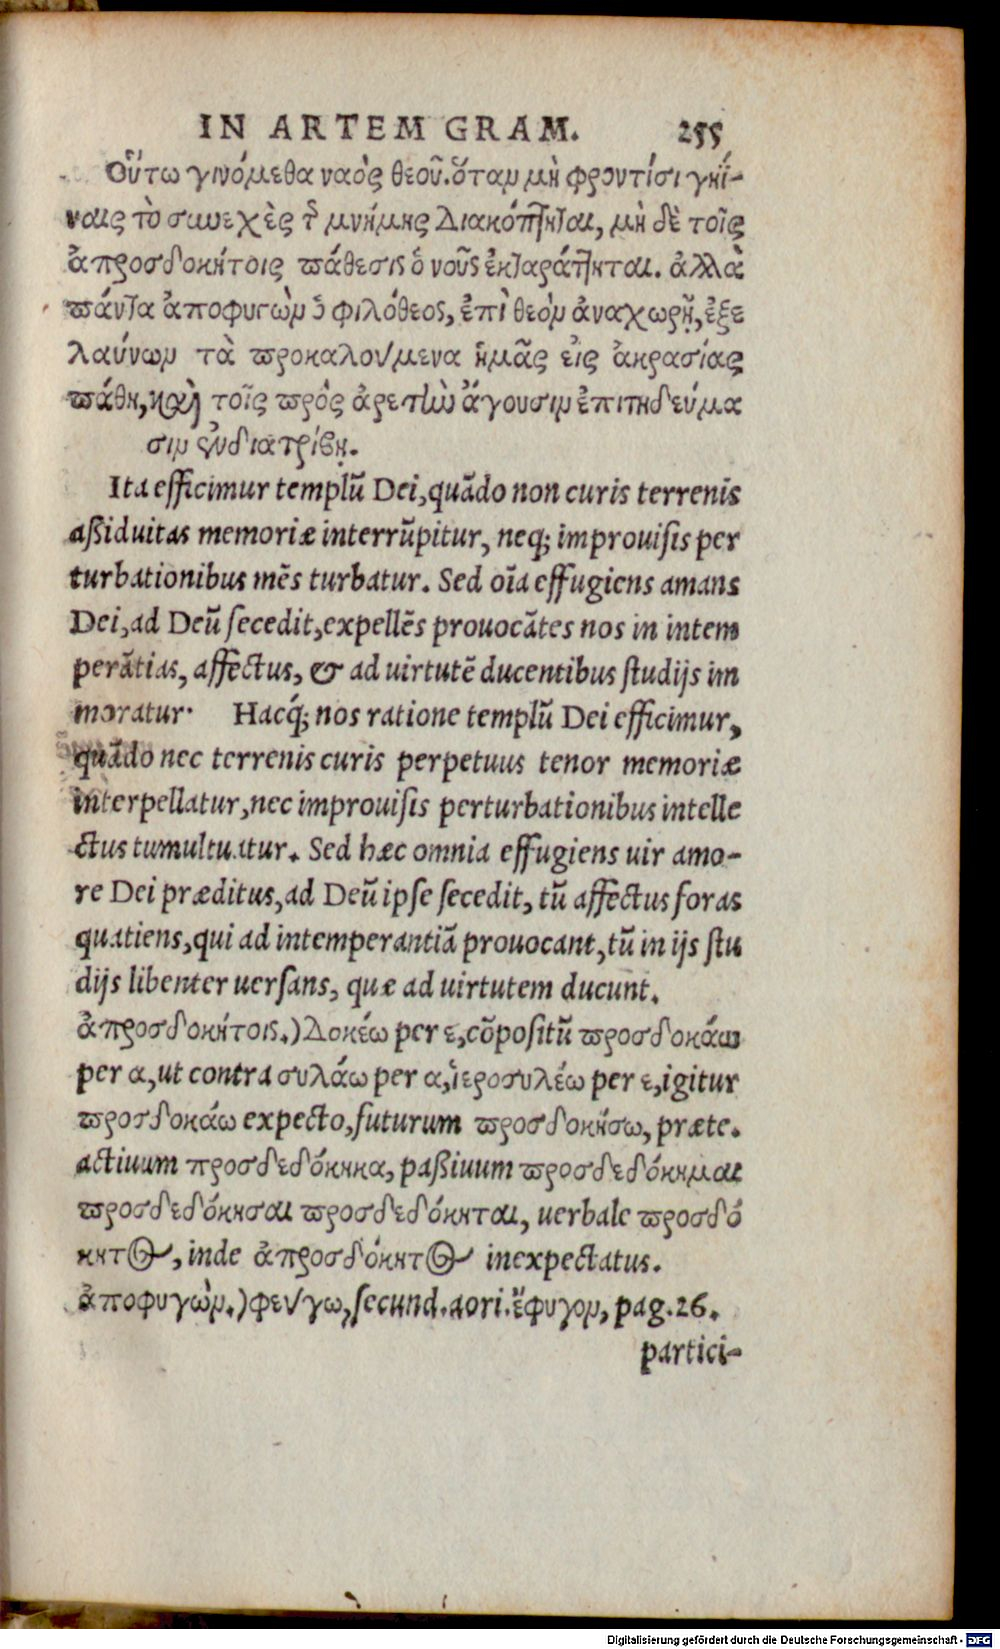 IN ARTEM GRAM. 255
Οὕτω γινόμεθα ναὸς θεοῦ. ὅταν μὴ φροντίσι γηΐ-
ναις τὸ συνεχὲς τ῀ μνήμης διακόπτηται, μὴ δὲ τοῖς
ἀπροσδοκήτοις πάθεσιν ὁ νοῦς ἐκταράττηται. ἀλλὰ
πάντα ἀποφυγὼν ὁ φιλόθεος, ἐπὶ θεὸν ἀναχωρῇ, ἐξε
λαύνων τὰ προκαλούμενα ἡμᾶς εἰς ἀκρασίας
πάθη, καὶ τοῖς πρὸς ἀρετὴν ἄγουσιν ἐπιτηδεύμα
σιν ἐνδιατρίβῃ.
Ita efficimur templũ Dei, quãdo non curis terrenis
aßiduitas memoriæ interrũpitur, neq; improuiſis per
turbationibus mẽs turbatur. Sed oĩa effugiens amans
Dei, ad Deũ ſecedit, expellẽs prouocãtes nos in intem
perãtias, affectus, & ad uirtutẽ ducentibus ſtudijs im
moratur. Hacq́; nos ratione templũ Dei efficimur,
quãdo nec terrenis curis perpetuus tenor memoriæ
interpellatur, nec improuiſis perturbationibus intelle
ctus tumultuatur. Sed hæc omnia effugiens uir amo-
re Dei præditus, ad Deũ ipſe ſecedit, tũ affectus foras
quatiens, qui ad intemperantiã prouocant, tũ in ijs ſtu
dijs libenter uerſans, quæ ad uirtutem ducunt.
ἀπροσδοκήτοις.) Δοκέω per ε, cõpoſitũ προσδοκάω
per α, ut contra συλάω per α, ἱεροσυλέω per ε, igitur
προσδοκάω expecto, futurum προσδοκήσω, præte.
actiuum προσδεδόκηκα, paßiuum προσδεδόκημαι
προσδεδόκησαι προσδεδόκηται, uerbale προσδό
κητος, inde ἀπροσδόκητος inexpectatus.
ἀποφυγὼν.) φεύγω, ſecund. aori. ἔφυγον, pag. 26.
partici-
Digitalisierung gefördert durch die Deutsche Forschungsgemeinschaft - DFG